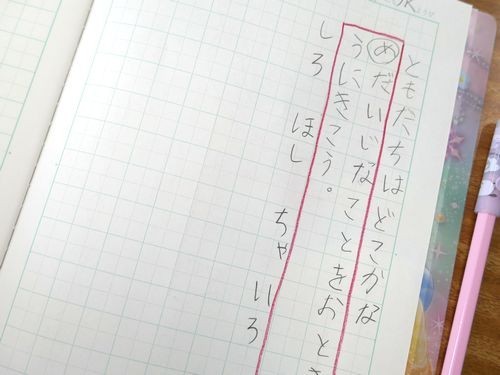 ともだちはどこかな
めだいじなことをおと
うにきこう。
しろ ほし ちゃいろ